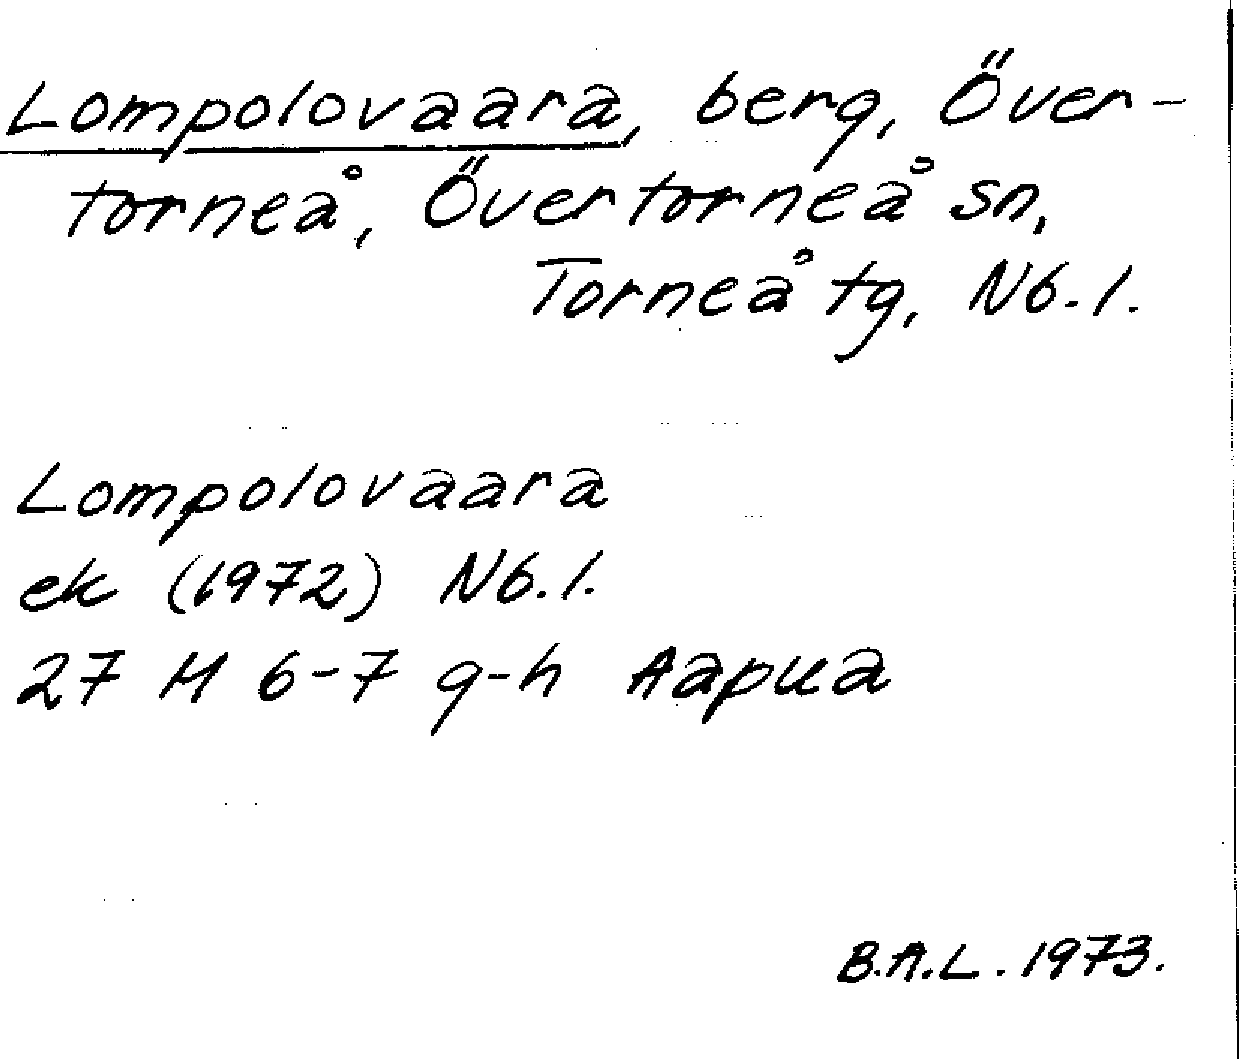 Lompolovaara, berg, Över-
torneå, Övertorneå sn,
Torneå tg, Nb.l.
Lompolovaara
ek (1972) Nb.l.
27 M 6-7 g-h Aapua
B.A.L. 1973.